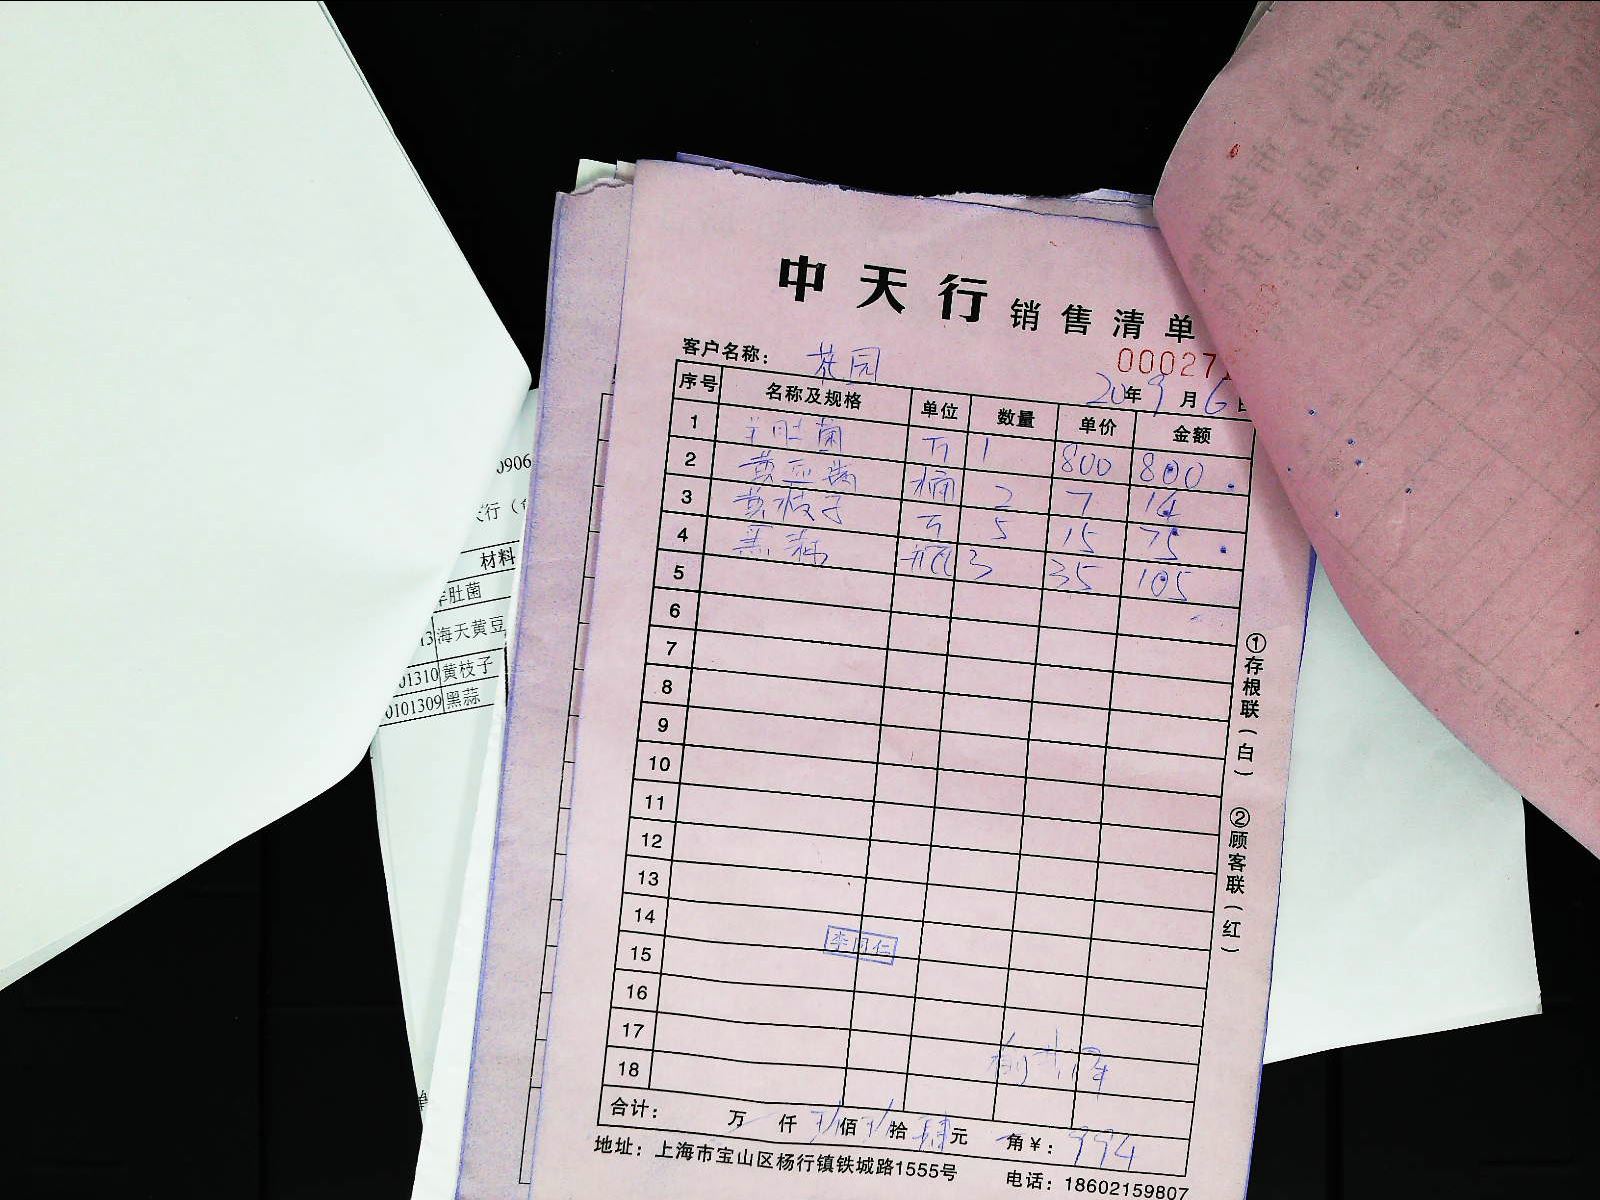 中天行 销售清单
客户名称： 花园
00027
20年9月6日
序号 名称及规格 单位 数量 单价 金额
1 羊肚菌 斤 1 800 800
2 黄豆酱 桶 2 7 14
3 黄枝子 斤 5 15 75
4 黑蒜 瓶 3 35 105
5
6
7
8
9
10
11
12
13
14
15
16
17
18
合计： 万 仟 玖佰玖拾肆元 角￥：994
地址：上海市宝山区杨行镇铁城路1555号 电话：18602159807
①存根联（白） ②顾客联（红）
0906
天行（
材料
羊肚菌
13 海天黄豆
01310 黄枝子
0101309 黑蒜